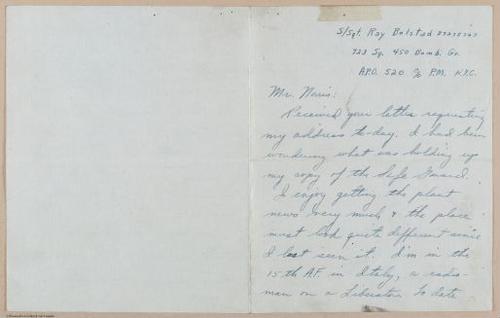 S/Sgt. Ray Bolstad
723 Sq. 450 Bomb. Gr.
A.P.O. 520 % P.M. N.Y.C.
Mr. Norris:
Received your letter requesting
my address to-day. I had been
wondering what was holding up
my copy of the Life Guard.
I enjoy getting the plant
news very much & the place
must look quite different since
I last seen it. I'm in the
15th A.F. in Italy, a radio-
man on a Liberator. To date